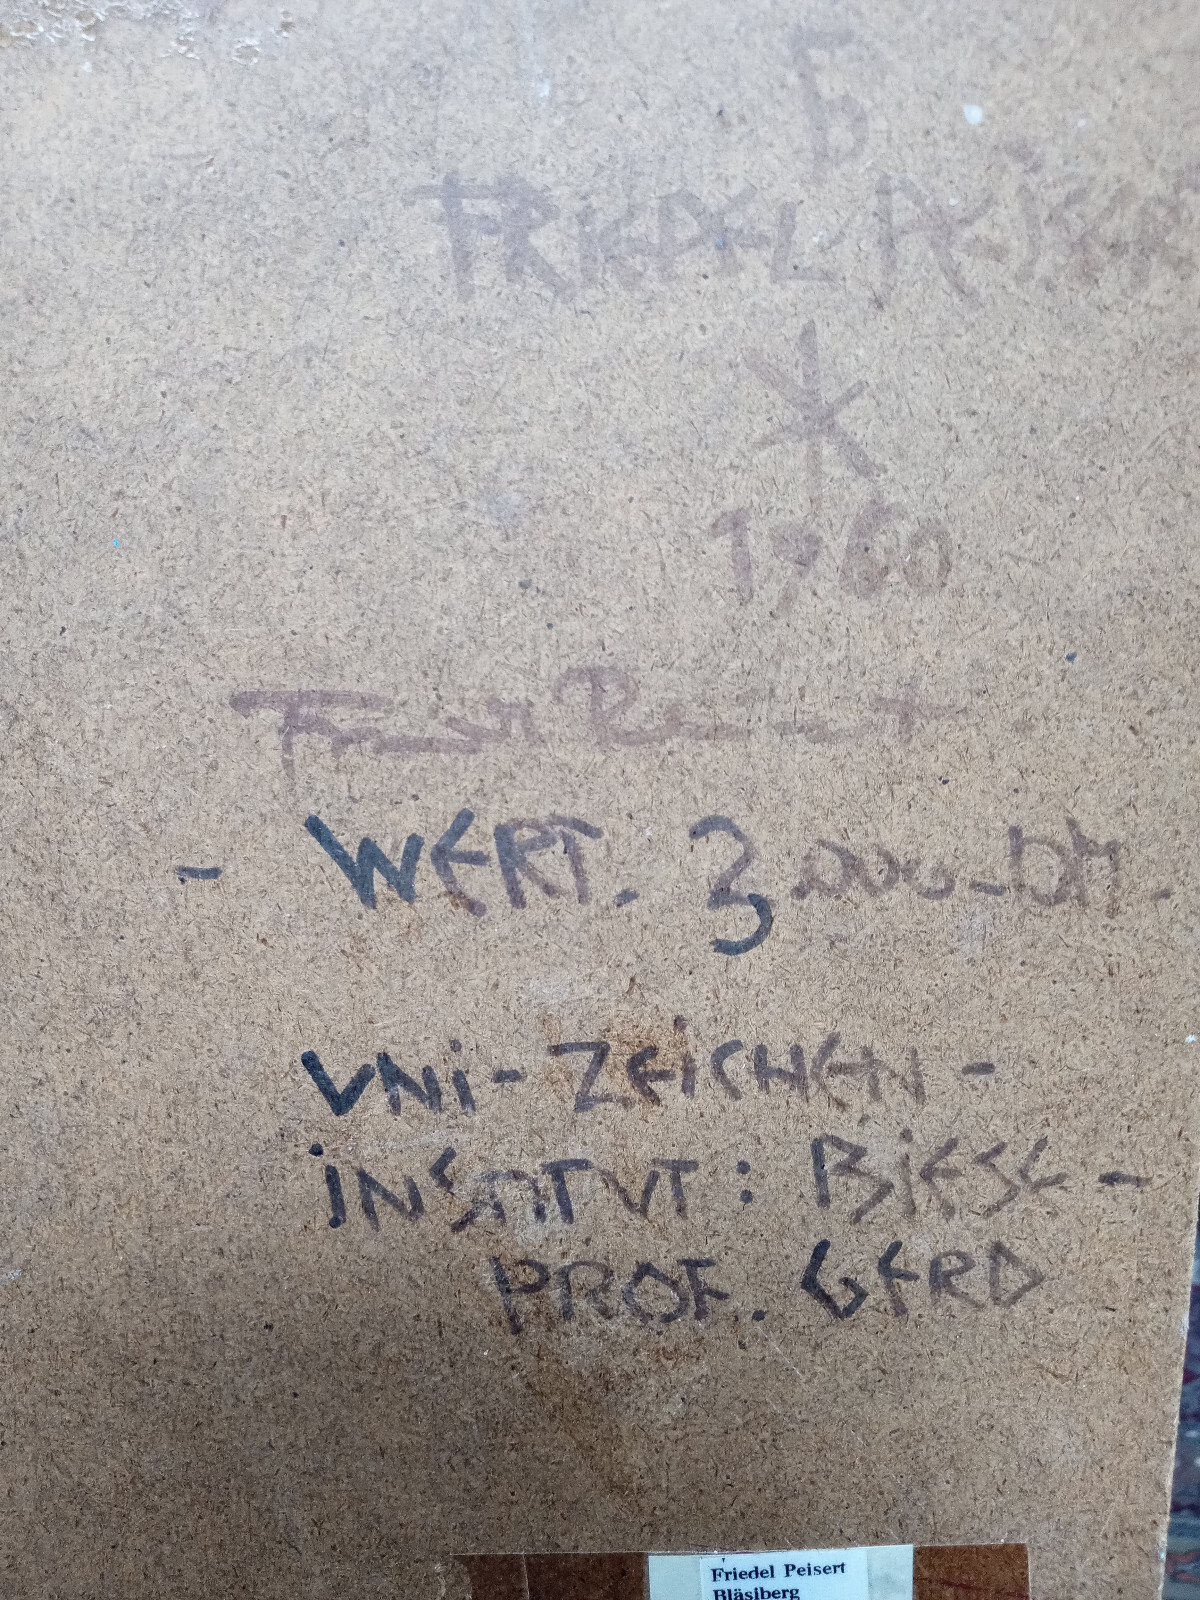 FRIEDEL PEISERT
1960
- WERT. 3.000 - DM. -
UNI - ZEICHEN -
INSTITUT: BIESE -
PROF. GERD
Friedel Peisert
Bläsiberg